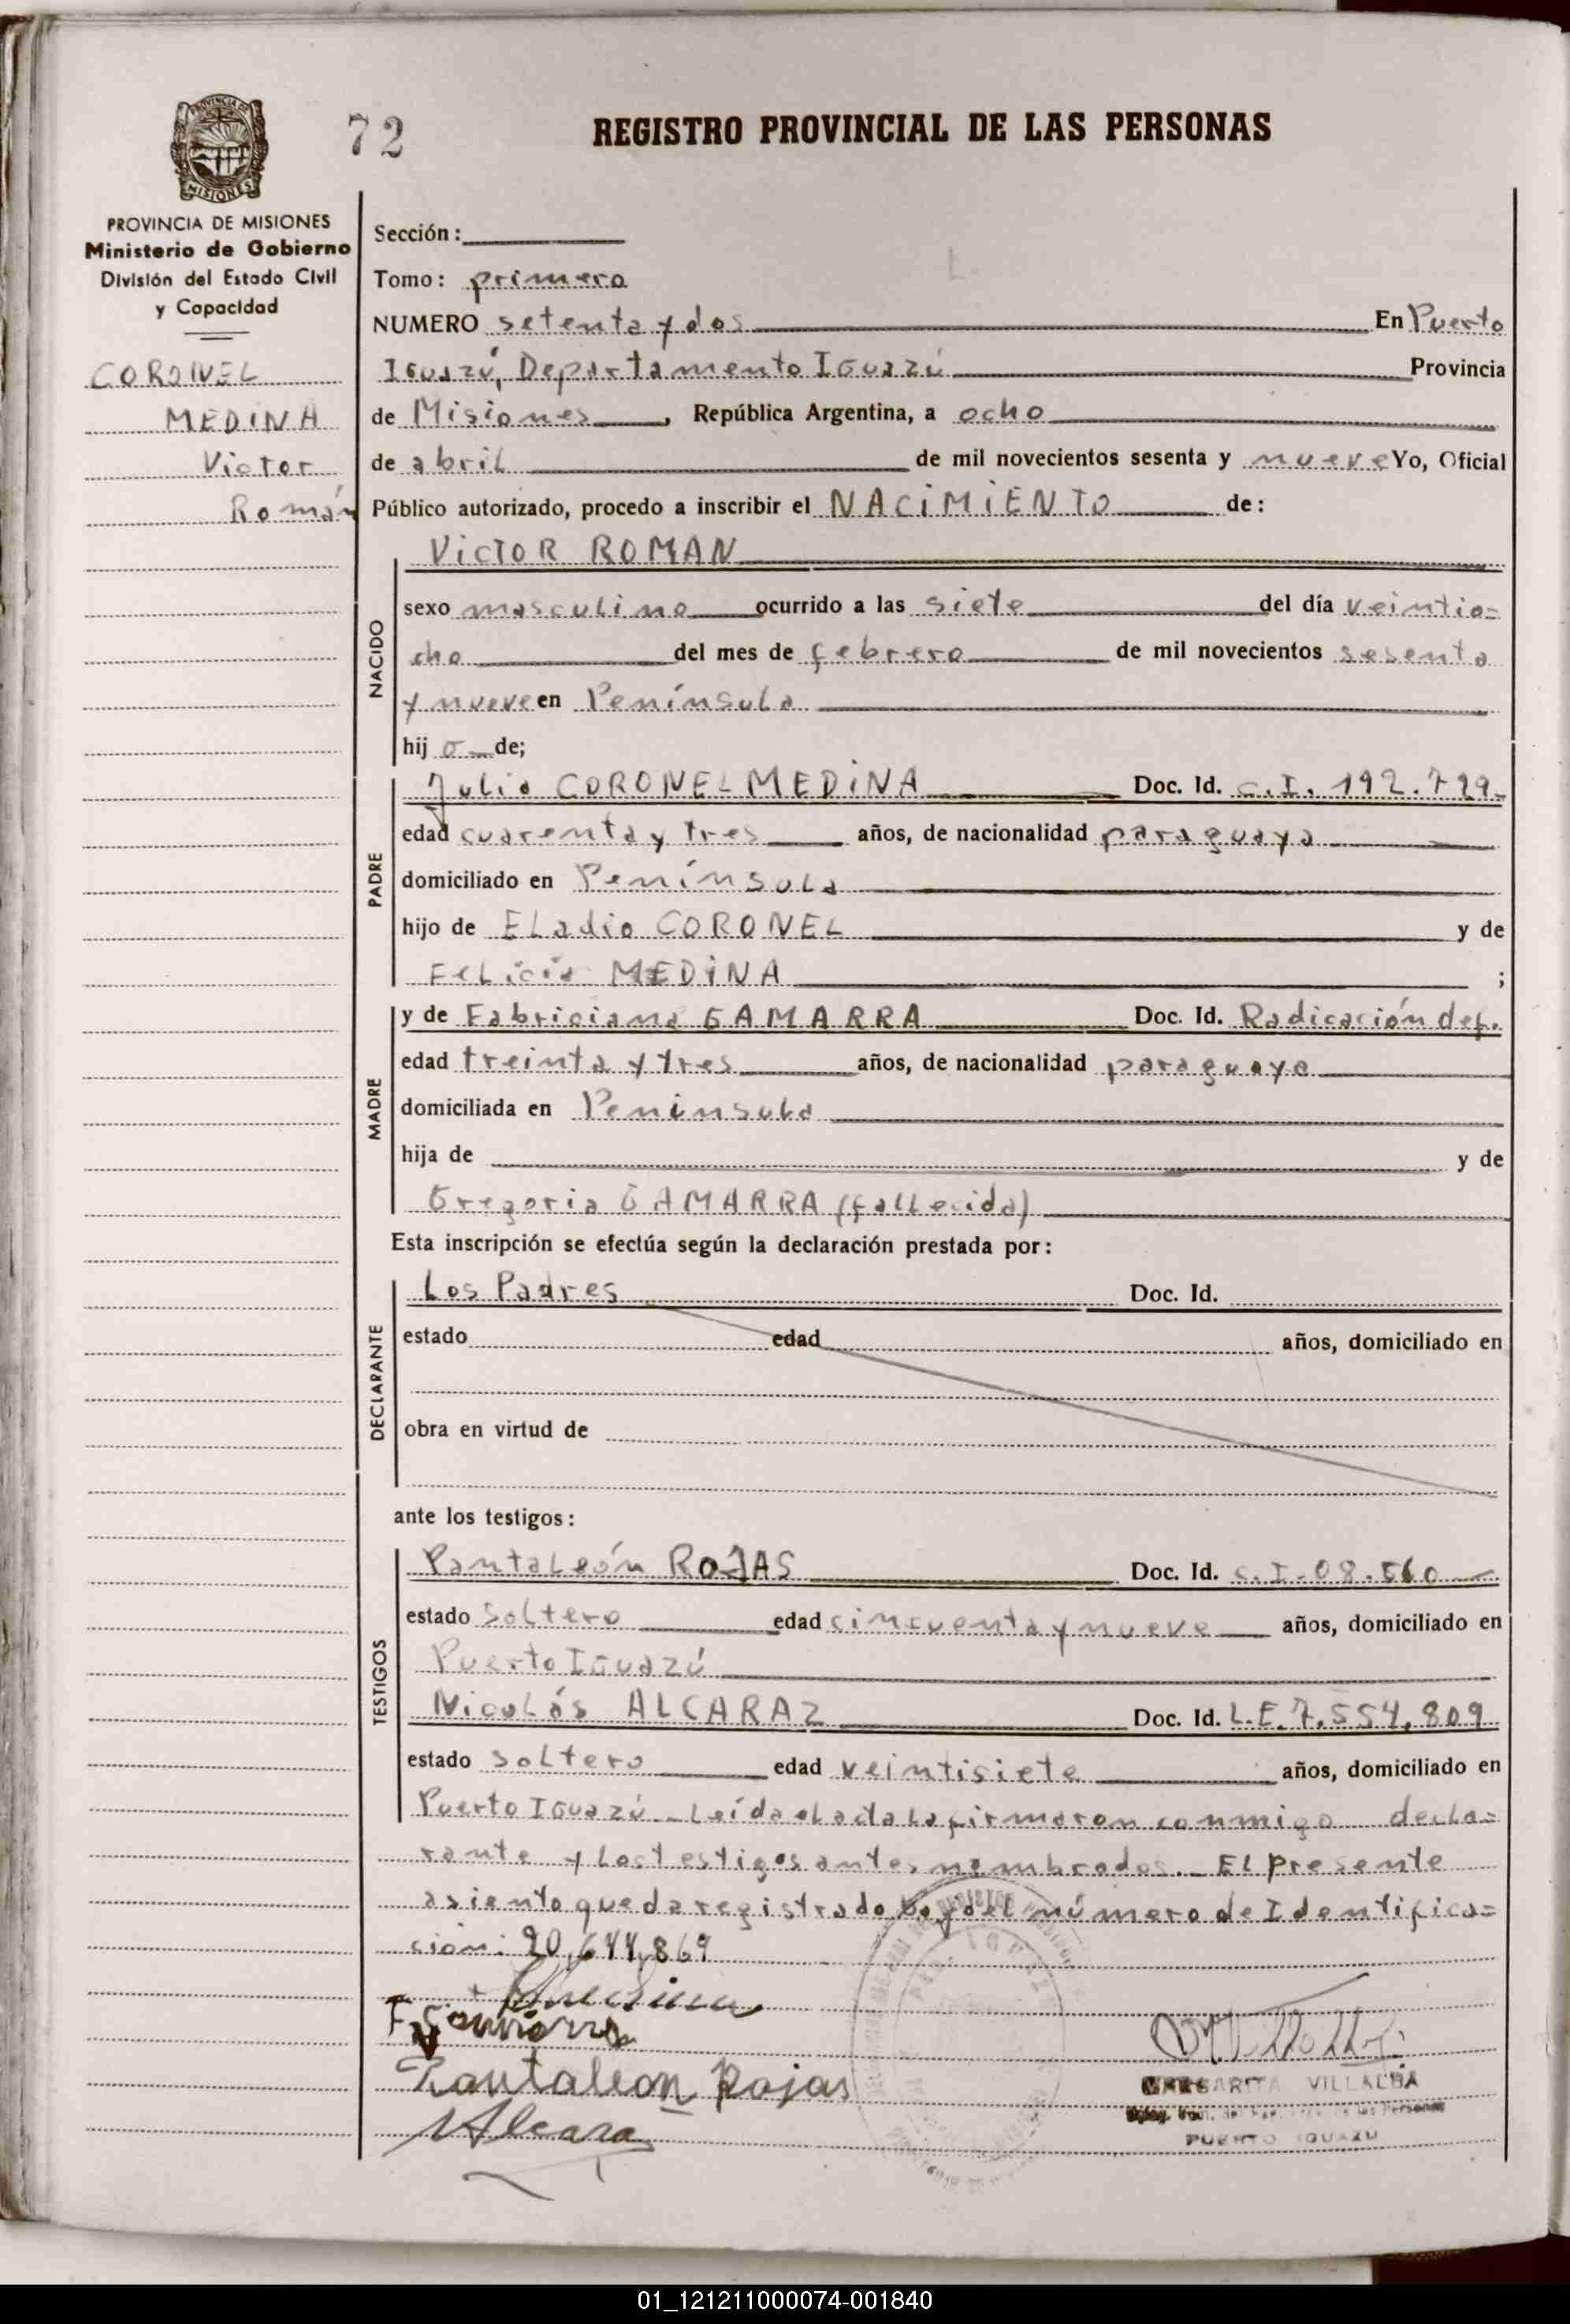 72
REGISTRO PROVINCIAL DE LAS PERSONAS
PROVINCIA DE
MISIONES
PROVINCIA DE MISIONES
Ministerio de Gobierno
División del Estado Civil
y Capacidad
CORONEL
MEDINA
Victor
Román
Sección:
Tomo: primero
NUMERO setenta y dos En Puerto
Iguazú, Departamento Iguazú Provincia
de Misiones, República Argentina, a ocho
de abril de mil novecientos sesenta y nueve Yo, Oficial
Público autorizado, procedo a inscribir el NACIMIENTO de:
VICTOR ROMAN
NACIDO
sexo masculino ocurrido a las siete del día veintio=
cho del mes de febrero de mil novecientos sesenta
y nueve en Península
hij o de;
PADRE
Julio CORONEL MEDINA Doc. Id. C.I. 192.729-
edad cuarenta y tres años, de nacionalidad paraguaya
domiciliado en Península
hijo de Eladio CORONEL y de
Felicia MEDINA ;
MADRE
y de Fabriciana GAMARRA Doc. Id. Radicación def.
edad treinta y tres años, de nacionalidad paraguaya
domiciliada en Península
hija de y de
Gregoria GAMARRA (fallecida)
Esta inscripción se efectúa según la declaración prestada por:
DECLARANTE
Los Padres Doc. Id.
estado edad años, domiciliado en
obra en virtud de
ante los testigos:
TESTIGOS
Pantaleón ROJAS Doc. Id. C.I. 08.560
estado soltero edad cincuenta y nueve años, domiciliado en
Puerto Iguazú
Nicolás ALCARAZ Doc. Id. L.E. 7.554.809
estado soltero edad veintisiete años, domiciliado en
Puerto Iguazú - Leída el acta la firmaron conmigo decla=
rante y los testigos antes nombrados. El presente
asiento queda registrado bajo el número de Identifica=
ción: 20.644.869
F. Gamarra
Pantaleon Rojas
Alcara
MARGARITA VILLALBA
PUERTO IGUAZU
01_121211000074-001840